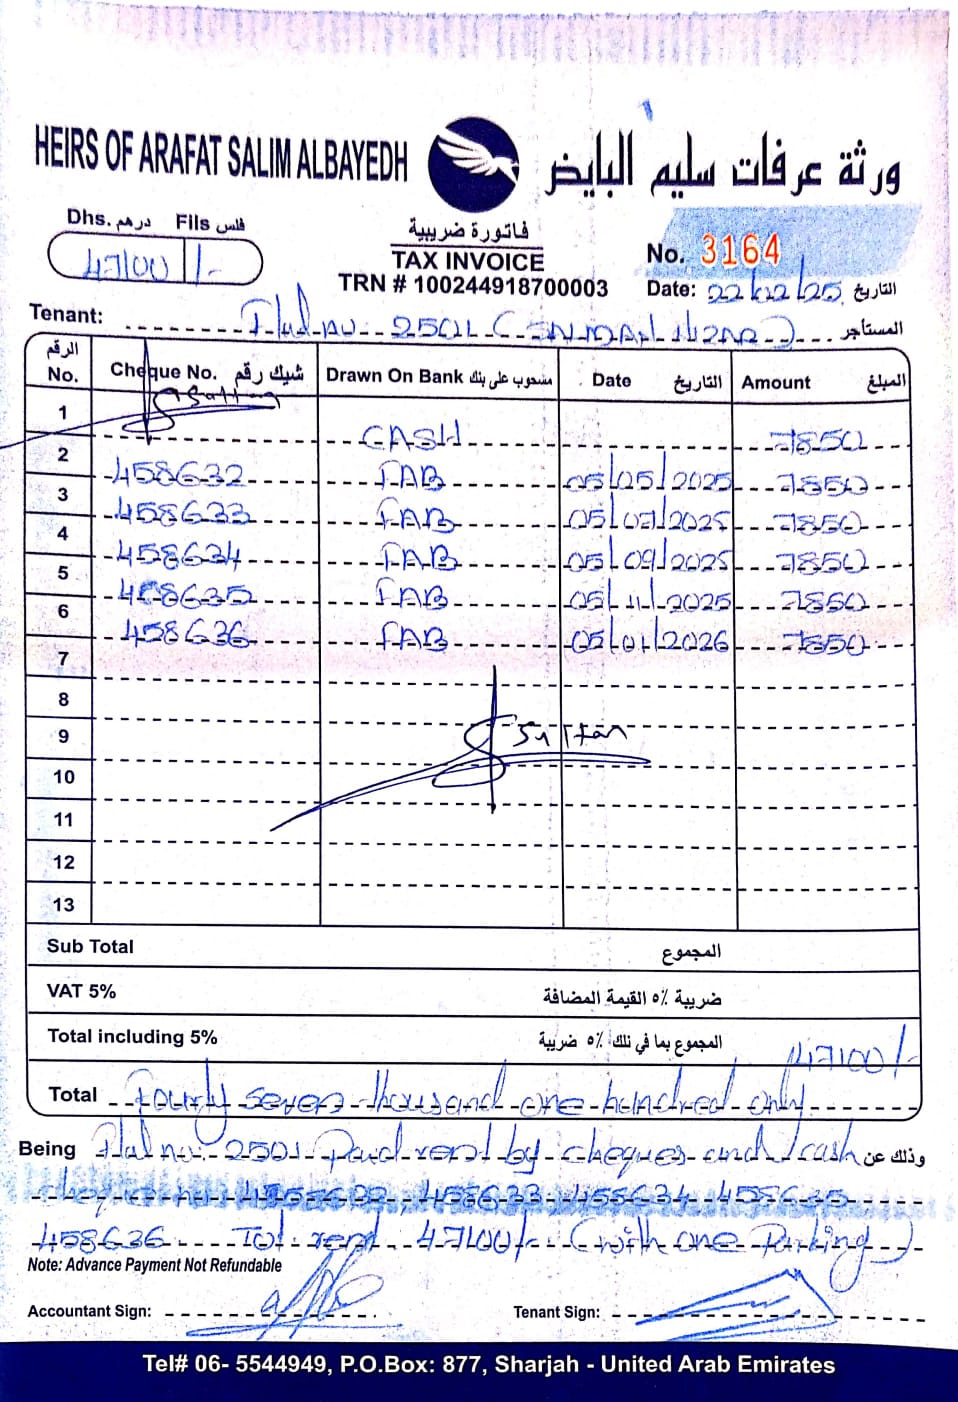 HEIRS OF ARAFAT SALIM ALBAYEDH
ورثة عرفات سليم البايض
Dhs. درهم Fils فلس
47100/-
فاتورة ضريبية
TAX INVOICE
TRN # 100244918700003
No. 3164
Date: 22/02/25 التاريخ
Tenant: Flat no. 2501 المستأجر
الرقم No. Cheque No. شيك رقم Drawn On Bank مسحوب على بنك Date التاريخ Amount المبلغ
1 CASH 7850
2 458632 FAB 05/05/2025 7850
3 458633 FAB 05/07/2025 7850
4 458634 FAB 05/09/2025 7850
5 458635 FAB 05/11/2025 7850
6 458636 FAB 05/01/2026 7850
7
8
9 Sultan
10
11
12
13
Sub Total المجموع
VAT 5% ضريبة ٥٪ القيمة المضافة
Total including 5% المجموع بما في ذلك ٥٪ ضريبة 47100/-
Total Fourty seven thousand one hundred only
Being Flat no. 2501 Paid rent by cheques and cash وذلك عن
458633 458634 458635
458636 Tot. rent 47100/- (with one Parking)
Note: Advance Payment Not Refundable
Accountant Sign: Tenant Sign:
Tel# 06- 5544949, P.O.Box: 877, Sharjah - United Arab Emirates